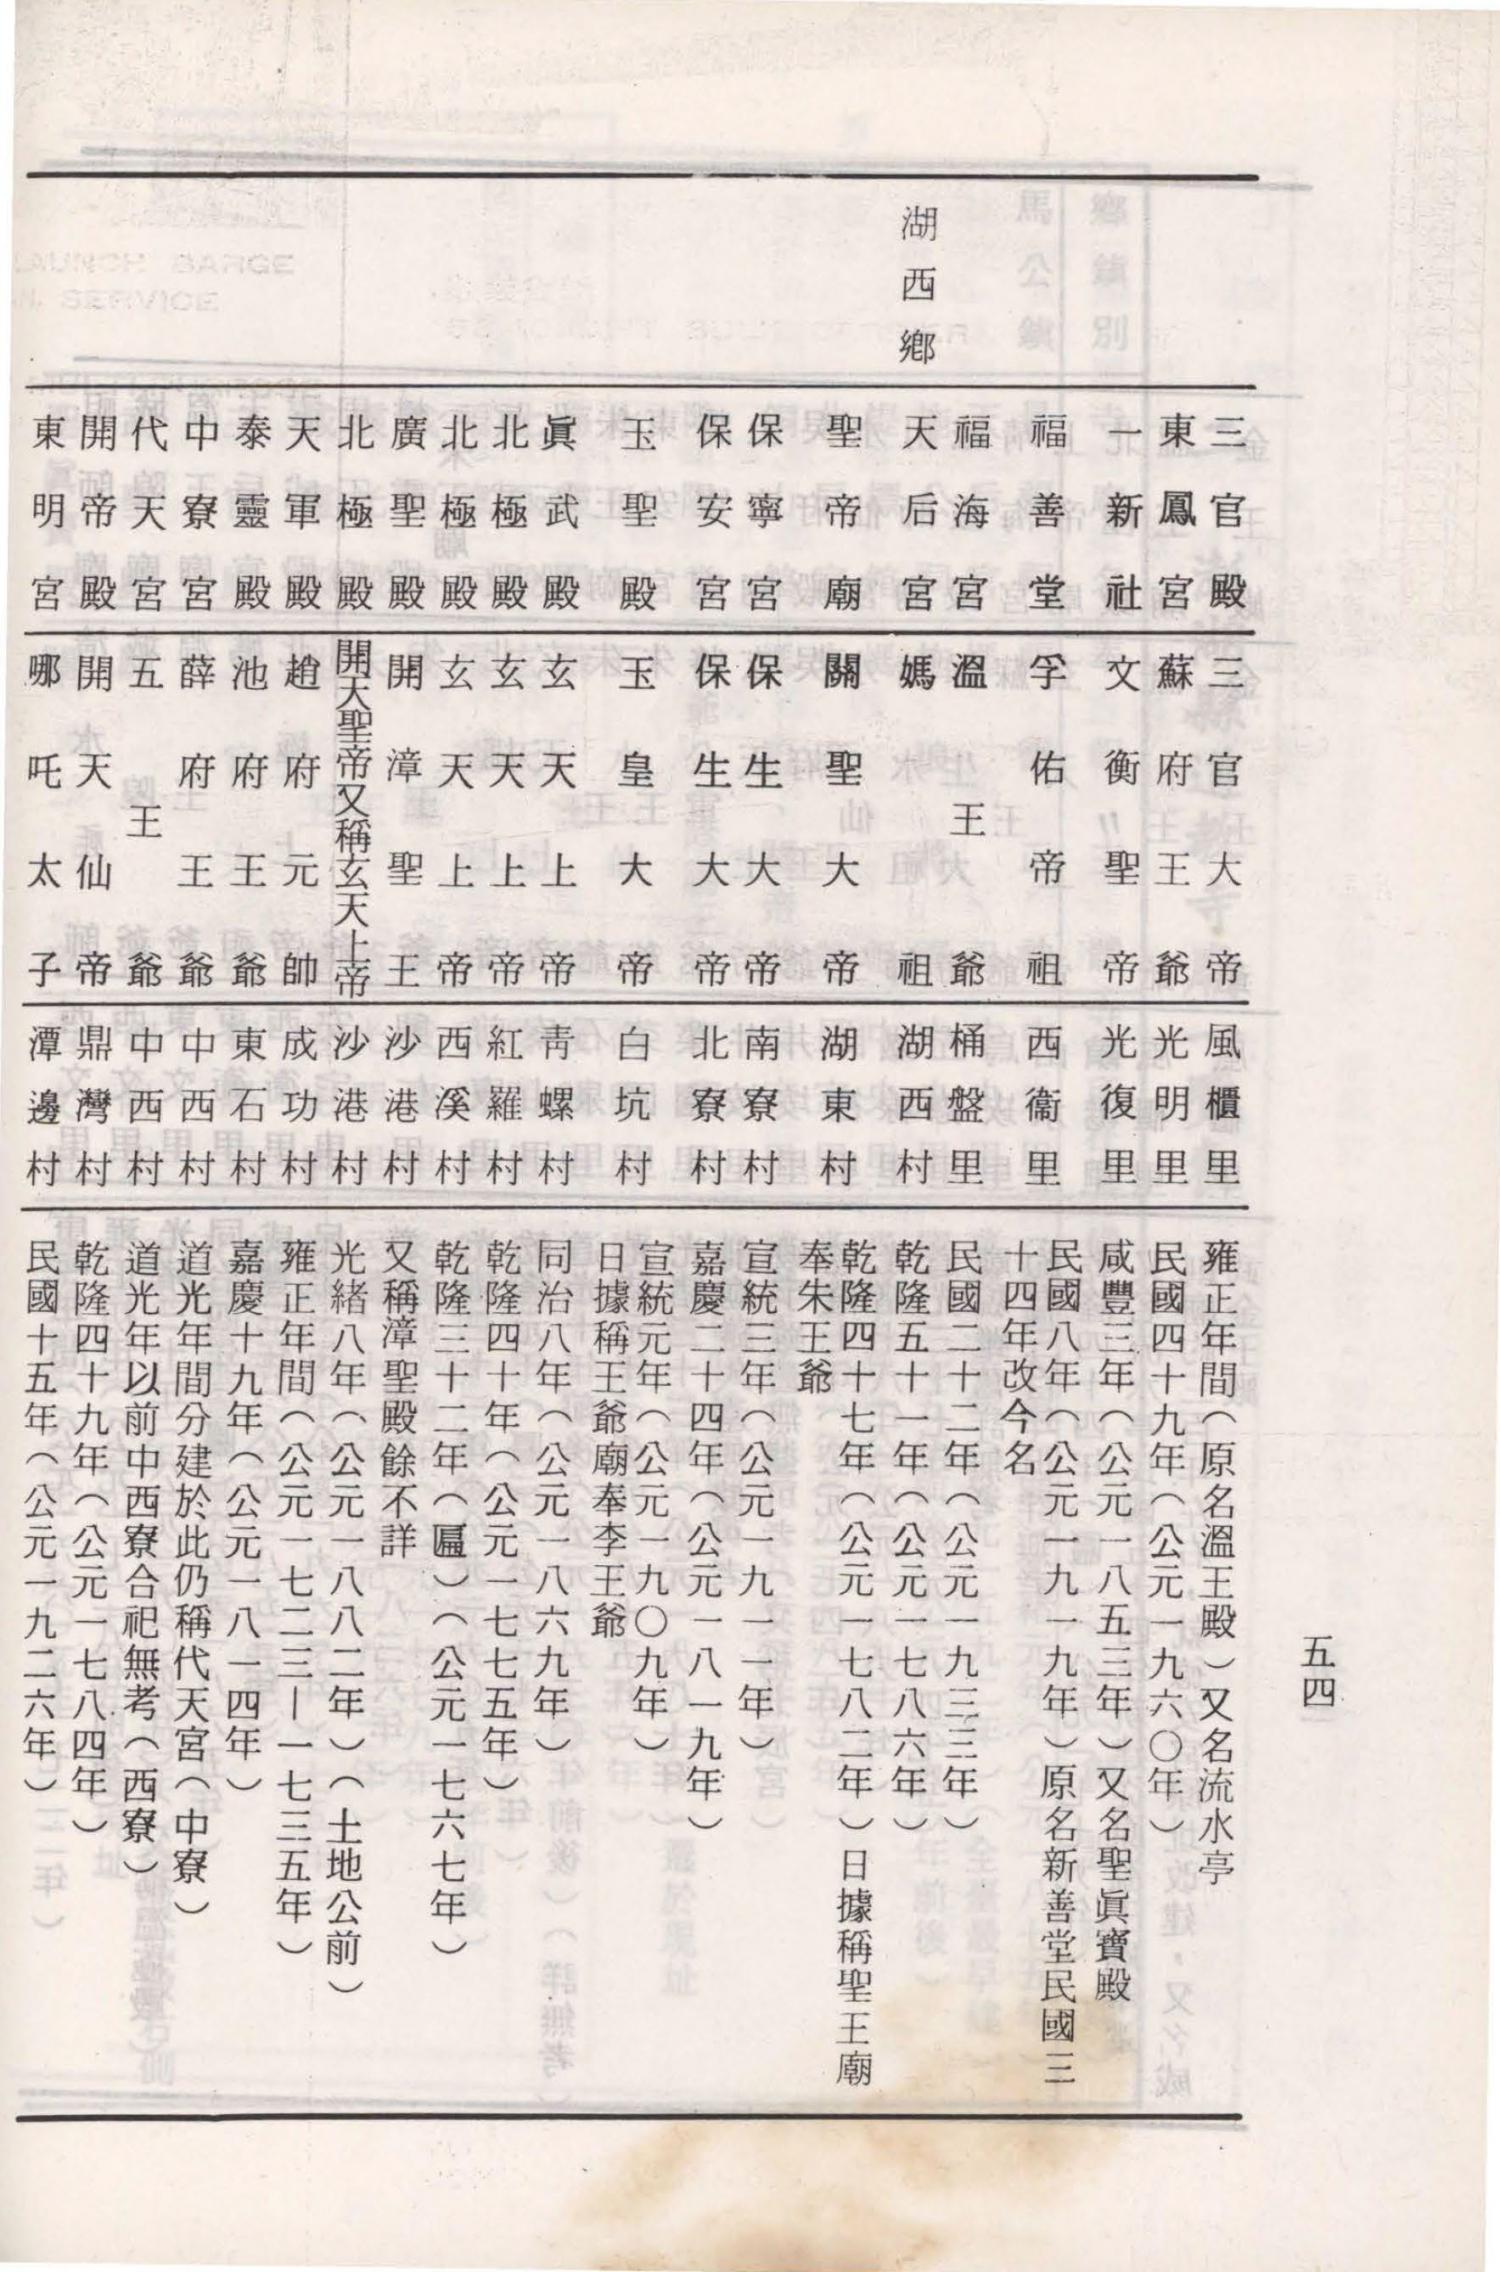 五四
三官殿 三官大帝 風櫃里 雍正年間（原名溫王殿）又名流水亭
東鳳宮 蘇府王爺 光明里 民國四十九年（公元一九六〇年）
一新社 文衡聖帝 光復里 咸豐三年（公元一八五三年）又名聖眞寶殿
福善堂 孚佑帝祖 西衞里 民國八年（公元一九一九年）原名新善堂民國三
十四年改今名
福海宮 溫王爺 桶盤里 民國二十二年（公元一九三三年）
湖西鄉 天后宮 媽祖 湖西村 乾隆五十一年（公元一七八六年）
聖帝廟 關聖大帝 湖東村 乾隆四十七年（公元一七八二年）日據稱聖王廟
奉朱王爺
保寧宮 保生大帝 南寮村 宣統三年（公元一九一一年）
保安宮 保生大帝 北寮村 嘉慶二十四年（公元一八一九年）
玉聖殿 玉皇大帝 白坑村 宣統元年（公元一九〇九年）
日據稱王爺廟奉李王爺
眞武殿 玄天上帝 青螺村 同治八年（公元一八六九年）
北極殿 玄天上帝 紅羅村 乾隆四十年（公元一七七五年）
北極殿 玄天上帝 西溪村 乾隆三十二年（匾）（公元一七六七年）
廣聖殿 開漳聖王 沙港村 又稱漳聖殿餘不詳
北極殿 開天聖帝又稱玄天上帝 沙港村 光緒八年（公元一八八二年）（土地公前）
天軍殿 趙府元帥 成功村 雍正年間（公元一七二三—一七三五年）
泰靈殿 池府王爺 東石村 嘉慶十九年（公元一八一四年）
中寮宮 薛府王爺 中西村 道光年間分建於此仍稱代天宮（中寮）
代天宮 五王爺 中西村 道光年以前中西寮合祀無考（西寮）
開帝殿 開天仙帝 鼎灣村 乾隆四十九年（公元一七八四年）
東明宮 哪吒太子 潭邊村 民國十五年（公元一九二六年）